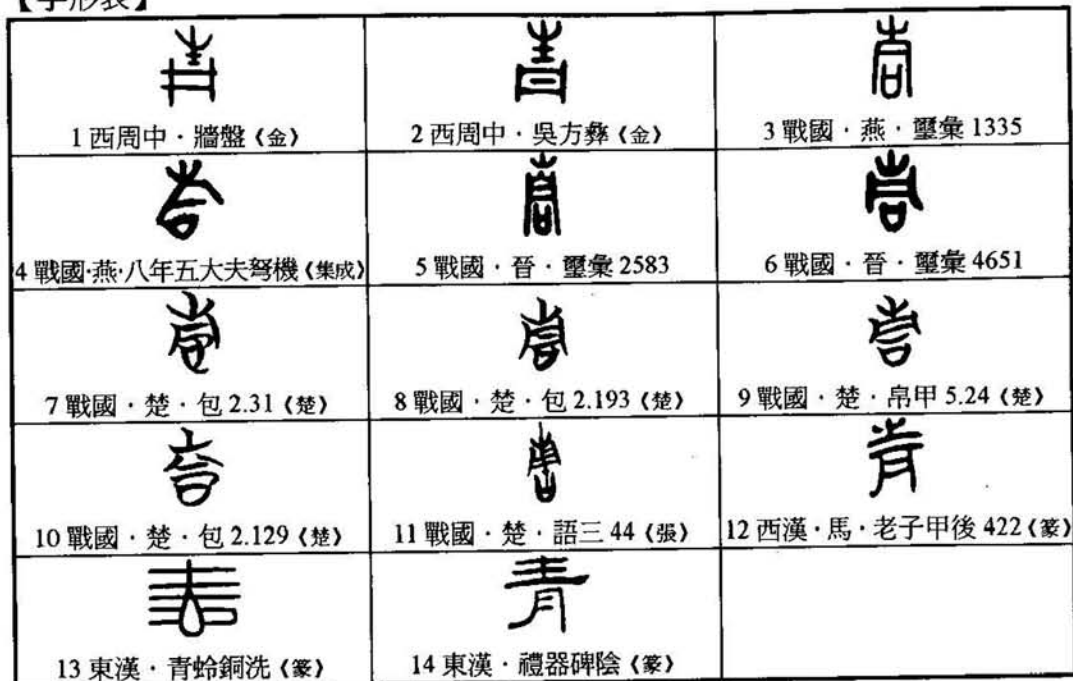 【字形表】
1 西周中・牆盤《金》 2 西周中・吳方彝《金》 3 戰國・燕・璽彙 1335
4 戰國・燕・八年五大夫弩機《集成》 5 戰國・晉・璽彙 2583 6 戰國・晉・璽彙 4651
7 戰國・楚・包 2.31《楚》 8 戰國・楚・包 2.193《楚》 9 戰國・楚・帛甲 5.24《楚》
10 戰國・楚・包 2.129《楚》 11 戰國・楚・語三 44《張》 12 西漢・馬・老子甲後 422《篆》
13 東漢・青蛉銅洗《篆》 14 東漢・禮器碑陰《篆》